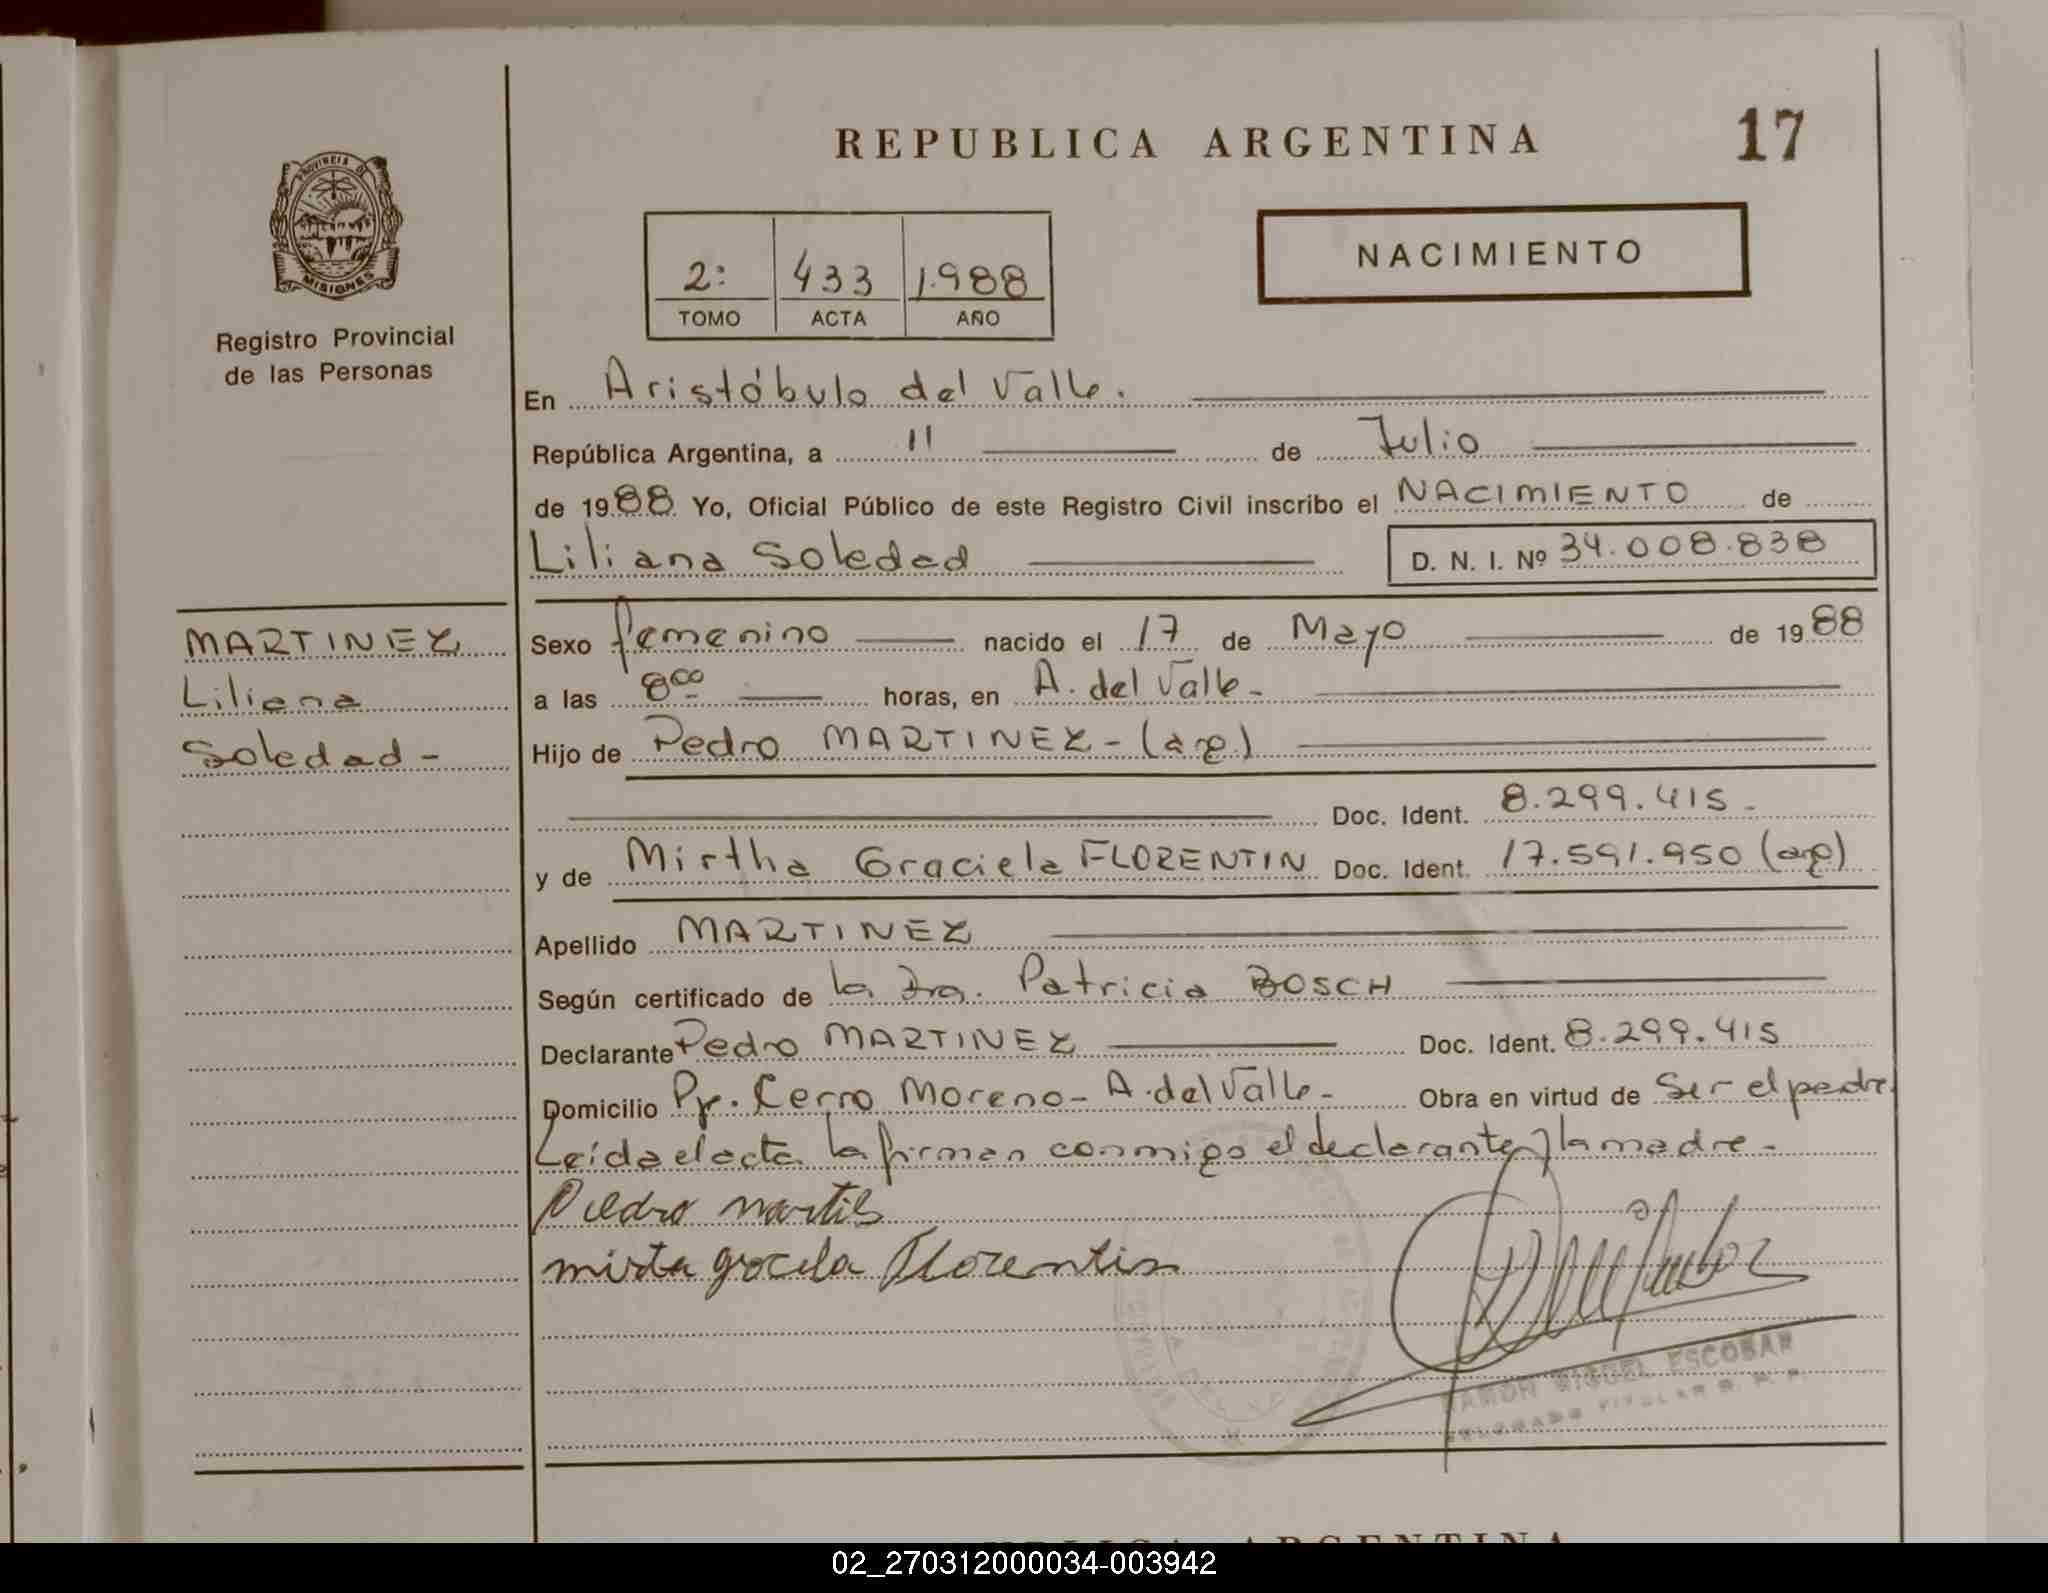 REPUBLICA ARGENTINA
17
PROVINCIA DE
MISIONES
Registro Provincial
de las Personas
2:
433
1.988
TOMO
ACTA
AÑO
NACIMIENTO
En Aristóbulo del Valle.
República Argentina, a 11 de Julio
de 1988 Yo, Oficial Público de este Registro Civil inscribo el NACIMIENTO de
Liliana Soledad
D. N. I. Nº 34.008.838
MARTINEZ
Liliana
Soledad -
Sexo femenino nacido el 17 de Mayo de 1988
a las 8 00 horas, en A. del Valle -
Hijo de Pedro MARTINEZ - (arg.)
Doc. Ident. 8.299.415 -
y de Mirtha Graciela FLORENTIN Doc. Ident. 17.591.950 (arg)
Apellido MARTINEZ
Según certificado de la Dra. Patricia BOSCH
Declarante Pedro MARTINEZ Doc. Ident. 8.299.415
Domicilio Pje. Cerro Moreno - A. del Valle - Obra en virtud de Ser el padre.
Leída el acta la firman conmigo el declarante y la madre -
Piedro martis
mirta grocela Florentin
RAMON MIGUEL ESCOBAR
DELEGADO TITULAR R. P. P.
REPUBLICA ARGENTINA
02_270312000034-003942